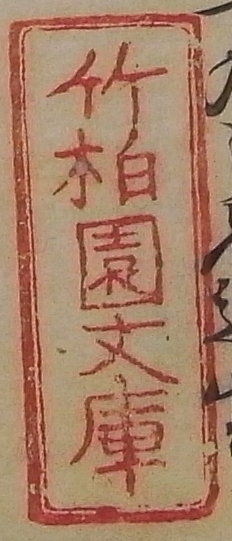 竹柏園文庫